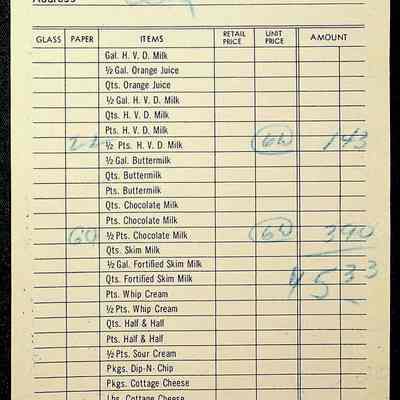 Address
GLASS PAPER ITEMS RETAIL PRICE UNIT PRICE AMOUNT
Gal. H. V. D. Milk
½ Gal. Orange Juice
Qts. Orange Juice
½ Gal. H. V. D. Milk
Qts. H. V. D. Milk
Pts. H. V. D. Milk
22 ½ Pts. H. V. D. Milk 6½ 143
½ Gal. Buttermilk
Qts. Buttermilk
Pts. Buttermilk
Qts. Chocolate Milk
Pts. Chocolate Milk
60 ½ Pts. Chocolate Milk 6½ 390
Qts. Skim Milk
½ Gal. Fortified Skim Milk $533
Qts. Fortified Skim Milk
Pts. Whip Cream
½ Pts. Whip Cream
Qts. Half & Half
Pts. Half & Half
½ Pts. Sour Cream
Pkgs. Dip-N- Chip
Pkgs. Cottage Cheese
Lbs. Cottage Cheese